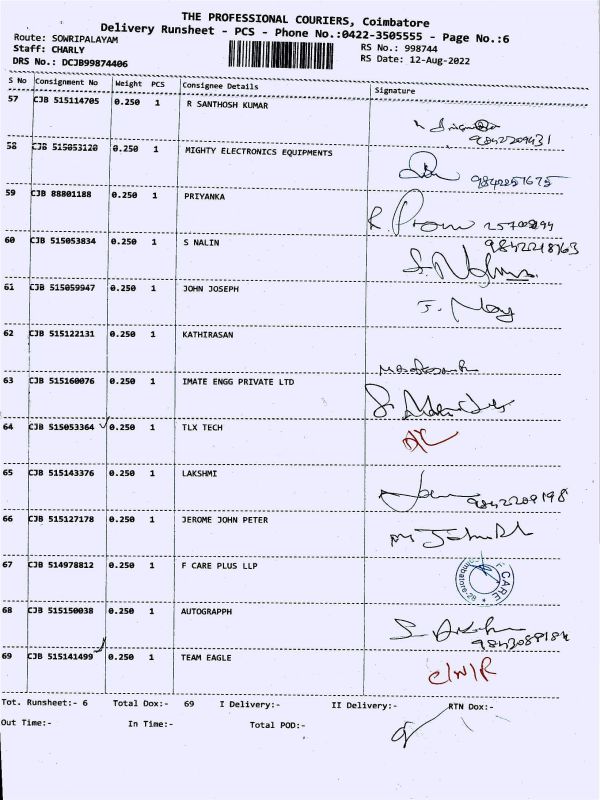 THE PROFESSIONAL COURIERS, Coimbatore
Delivery Runsheet - PCS - Phone No.:0422-3505555 - Page No.:6
Route: SOWRIPALAYAM
Staff: CHARLY RS No.: 998744
DRS No.: DCJB99874406 RS Date: 12-Aug-2022
S No Consignment No Weight PCS Consignee Details Signature
57 CJB 515114705 0.250 1 R SANTHOSH KUMAR
9842209431
58 CJB 515053120 0.250 1 MIGHTY ELECTRONICS EQUIPMENTS
9842251675
59 CJB 88801188 0.250 1 PRIYANKA
60 CJB 515053834 0.250 1 S NALIN
9842218763
61 CJB 515059947 0.250 1 JOHN JOSEPH
62 CJB 515122131 0.250 1 KATHIRASAN
63 CJB 515160076 0.250 1 IMATE ENGG PRIVATE LTD
64 CJB 515053364 0.250 1 TLX TECH
65 CJB 515143376 0.250 1 LAKSHMI
9842209198
66 CJB 515127178 0.250 1 JEROME JOHN PETER
67 CJB 514978812 0.250 1 F CARE PLUS LLP
CARE
68 CJB 515150038 0.250 1 AUTOGRAPPH
69 CJB 515141499 0.250 1 TEAM EAGLE
Tot. Runsheet:- 6 Total Dox:- 69 I Delivery:- II Delivery:- RTN Dox:-
Out Time:- In Time:- Total POD:-